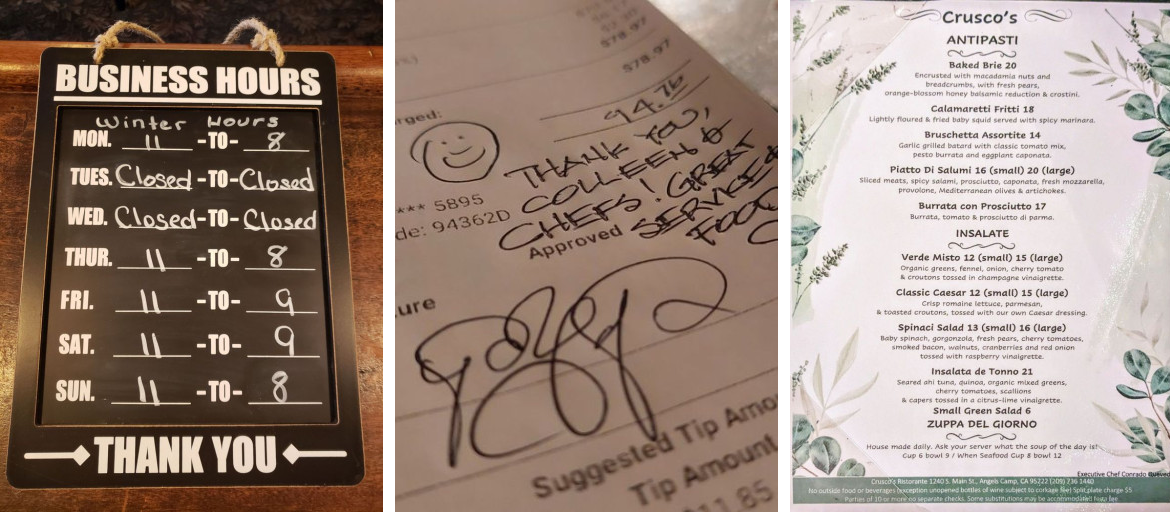 BUSINESS HOURS
Winter Hours
MON. 11 -TO- 8
TUES. Closed -TO- Closed
WED. Closed -TO- Closed
THUR. 11 -TO- 8
FRI. 11 -TO- 9
SAT. 11 -TO- 9
SUN. 11 -TO- 8
THANK YOU
$78.97
$78.97
94.76
rged:
THANK YOU,
COLLEEN &
CHEFS! GREAT
SERVICE &
FOOD
*** 5895
de: 94362D
Approved
ure
Suggested Tip Amo
Tip Amount
11.85
Crusco's
ANTIPASTI
Baked Brie 20
Encrusted with macadamia nuts and
breadcrumbs, with fresh pears,
orange-blossom honey balsamic reduction & crostini.
Calamaretti Fritti 18
Lightly floured & fried baby squid served with spicy marinara.
Bruschetta Assortite 14
Garlic grilled batard with classic tomato mix,
pesto burrata and eggplant caponata.
Piatto Di Salumi 16 (small) 20 (large)
Sliced meats, spicy salami, prosciutto, caponata, fresh mozzarella,
provolone, Mediterranean olives & artichokes.
Burrata con Prosciutto 17
Burrata, tomato & prosciutto di parma.
INSALATE
Verde Misto 12 (small) 15 (large)
Organic greens, fennel, onion, cherry tomato
& croutons tossed in champagne vinaigrette.
Classic Caesar 12 (small) 15 (large)
Crisp romaine lettuce, parmesan,
& toasted croutons, tossed with our own Caesar dressing.
Spinaci Salad 13 (small) 16 (large)
Baby spinach, gorgonzola, fresh pears, cherry tomatoes,
smoked bacon, walnuts, cranberries and red onion
tossed with raspberry vinaigrette.
Insalata de Tonno 21
Seared ahi tuna, quinoa, organic mixed greens,
cherry tomatoes, scallions
& capers tossed in a citrus-lime vinaigrette.
Small Green Salad 6
ZUPPA DEL GIORNO
House made daily. Ask your server what the soup of the day is!
Cup 6 bowl 9 / When Seafood Cup 8 bowl 12
Executive Chef Conrado
Crusco's Ristorante 1240 S. Main St., Angels Camp, CA 95722 (209) 736 1440
No outside food or beverages (exception unopened bottles of wine subject to corkage fee) Split plate charge $5
Parties of 10 or more no separate checks. Some substitutions may be accommodated! Nup fee